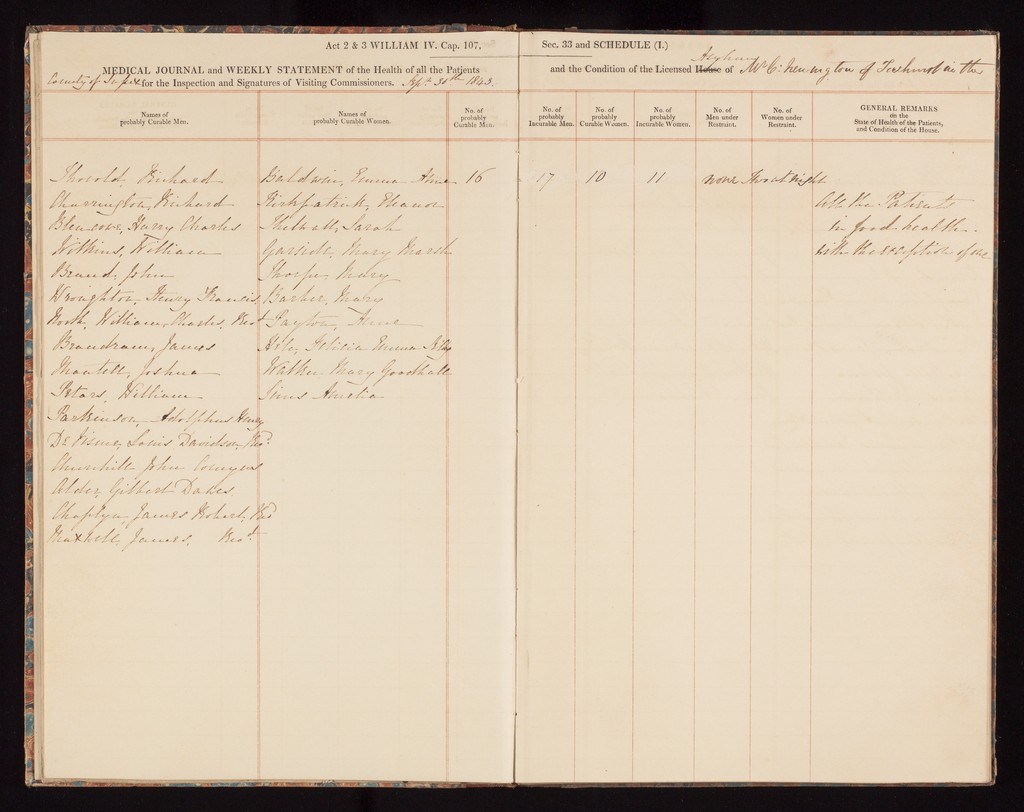 Act 2 & 3 WILLIAM IV. Cap. 107, Sec. 33 and SCHEDULE (I.)
MEDICAL JOURNAL and WEEKLY STATEMENT of the Health of all the Patients and the Condition of the Licensed House of Asylum Mr. C. Newington of Ticehurst in the
County of Sussex for the Inspection and Signatures of Visiting Commissioners. 30th 1843.
Names of
probably Curable Men.
Names of
probably Curable Women.
No. of
probably
Curable Men.
No. of
probably
Incurable Men.
No. of
probably
Curable Women.
No. of
probably
Incurable Women.
No. of
Men under
Restraint.
No. of
Women under
Restraint.
GENERAL REMARKS
on the
State of Health of the Patients,
and Condition of the House.
Thorold, Richard Baldwin, Emma Anne 16 17 10 11 none at night
Charrington, Richard Kirkpatrick, Eleanor All the Patients
Blencowe, Harry Charles Thelwall, Sarah in good health.
Wilkins, William Garside, Mary Marsh with the exception of one
Brand, John Thorpe, Mary
Wroughton, Henry Francis Barber, Mary
North, William Charles, Payton, Anne
Brandram, James Felicia Emma
Mantell, Joshua Walker Mary Goodhall
Peters, William Sims Amelia
Parkinson, Adolphus Henry
De Visme, Louis Davidson,
Churchill John Conyers
Alder, Gilbert Dakes
Chaplyn, James Robert,
Maxwell, James,